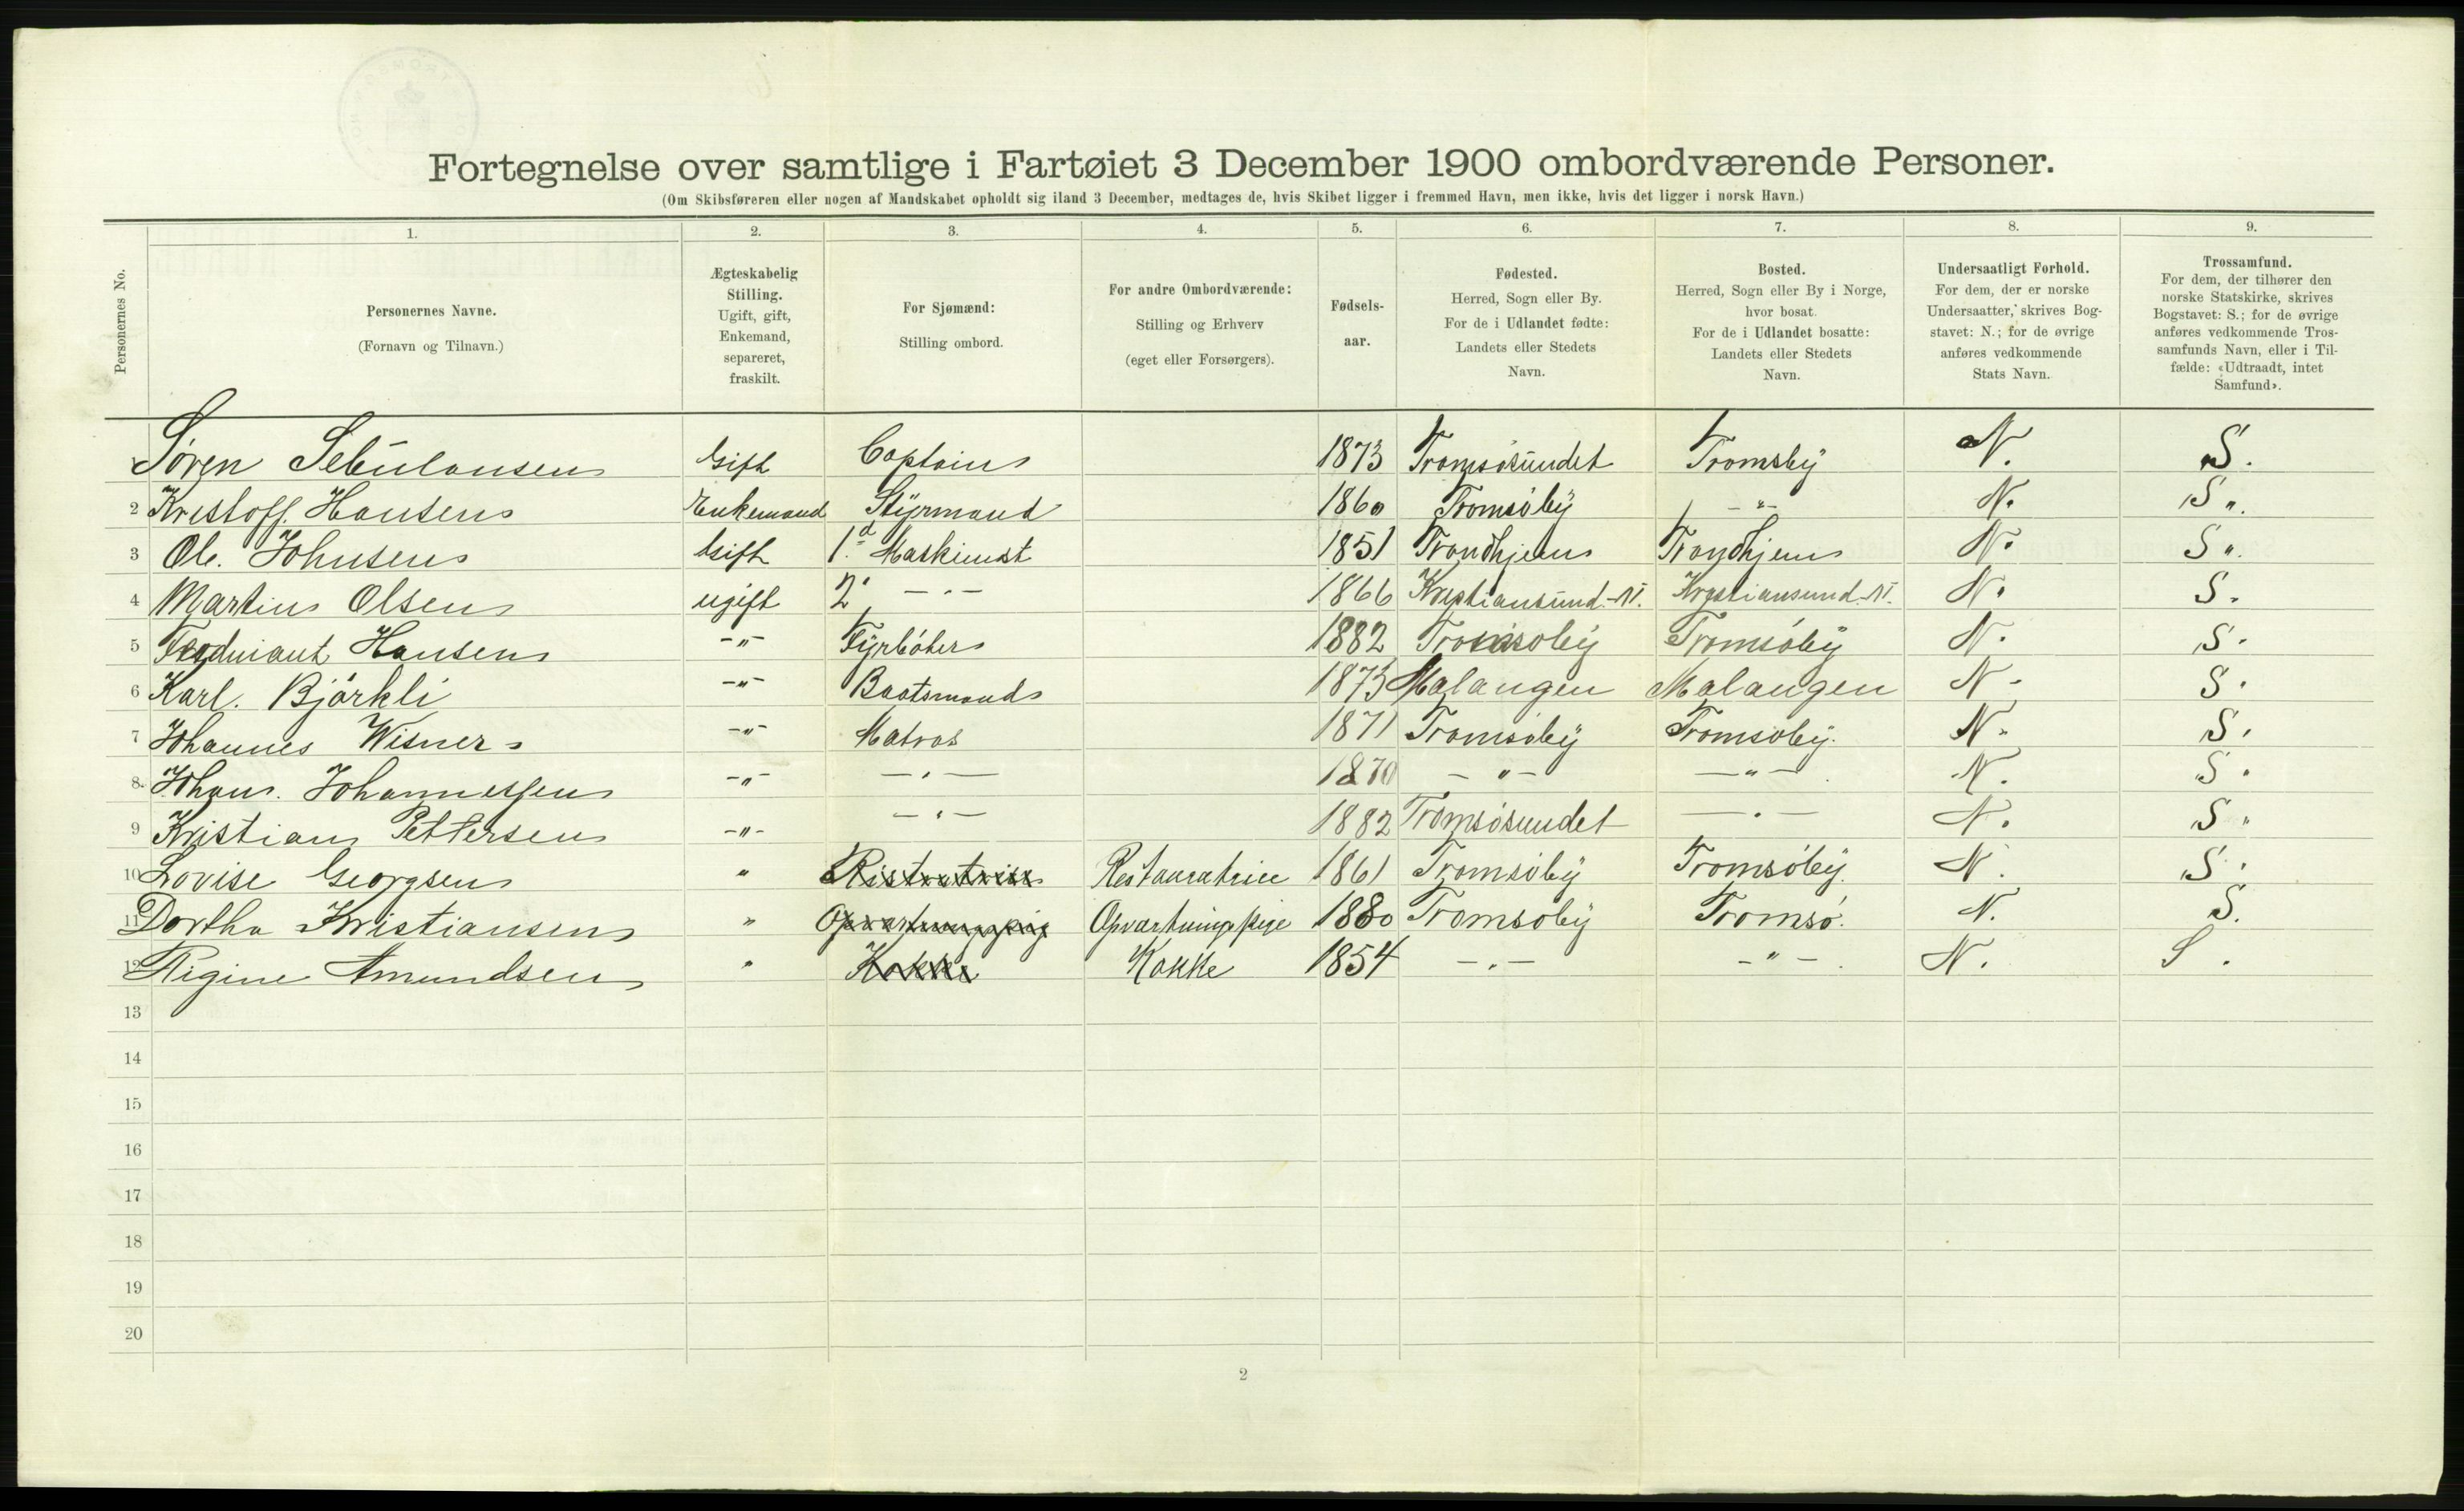 Fortegnelse over samtlige i Fartøiet 3 December 1900 ombordværende Personer.
(Om Skibsføreren eller nogen af Mandskabet opholdt sig iland 3 December, medtages de, hvis Skibet ligger i fremmed Havn, men ikke, hvis det ligger i norsk Havn.)
Personernes No.
1.
Personernes Navne.
(Fornavn og Tilnavn.)
2.
Ægteskabelig
Stilling.
Ugift, gift,
Enkemand,
separeret,
fraskilt.
3.
For Sjømænd:
Stilling ombord.
4.
For andre Ombordværende:
Stilling og Erhverv
(eget eller Forsørgers).
5.
Fødsels-
aar.
6.
Fødested.
Herred, Sogn eller By.
For de i Udlandet fødte:
Landets eller Stedets
Navn.
7.
Bosted.
Herred, Sogn eller By i Norge,
hvor bosat.
For de i Udlandet bosatte:
Landets eller Stedets
Navn.
8.
Undersaatligt Forhold.
For dem, der er norske
Undersaatter, skrives Bog-
stavet: N.; for de øvrige
anføres vedkommende
Stats Navn.
9.
Trossamfund.
For dem, der tilhører den
norske Statskirke, skrives
Bogstavet: S.; for de øvrige
anføres vedkommende Tros-
samfunds Navn, eller i Til-
fælde: «Udtraadt, intet
Samfund».
Søren Sebulonsen Gift Captain 1873 Tromsøsundet Tromsby N. S.
2 Kristoff. Hansen Enkemand Styrmand 1860 Tromsøby - " - N. S ".
3 Ole. Johnsen Gift 1.ª Maskinist 1851 Trondhjem Trondhjem N. S ".
4 Martin Olsen ugift 2. - " - 1866 Kristiansund.-N. Krystiansund.-N. N. S.
5 Hansen - " - Fyrbøter 1882 Tromsoby Tromsöby N. S.
6 Karl. Björkli - " - Baatsmand 1873 Malangen Malangen N. S.
7 Johannes Wisner - " - Matros 1871 Tromsöby Tromsöby. N. S.
8. Johan. Johannessen - " - - " - 1870 - " - - " - N. S.
9 Kristian Pettersen - " - - " - 1882 Tromsösundet - " - N. S.
10 Lovise Georgsen " Ristratrise Restauratrice 1861 Tromsöby Tromsöby. N. S.
11 Dortha Kristiansen " Opvartningspig Opvartningspige 1880 Tromsöby Tromsö. N. S.
12 Rigine Amundsen " Kokke Kokke 1854 - " - - " - N. S.
13
14
15
16
17
18
19
20
2